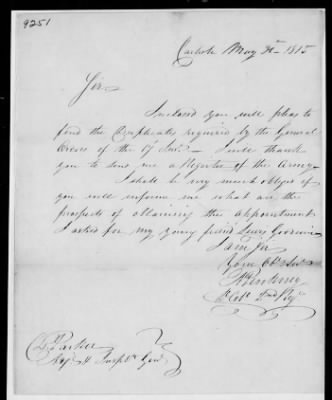 9251
Carlisle May 30th 1815
Sir
Inclosed you will please to
find the Duplicates required by the General
Orders of the 17 Inst. I will thank
you to send me a Register of the Army
I shall be very much obliged if
you will inform me what are the
prospects of obtaining the appointment
I asked for my young friend Lewis
I am Sir
Your Obt Servt
Pinkney
Lt Col.
D. Parker
Adjt & Inspr Genl